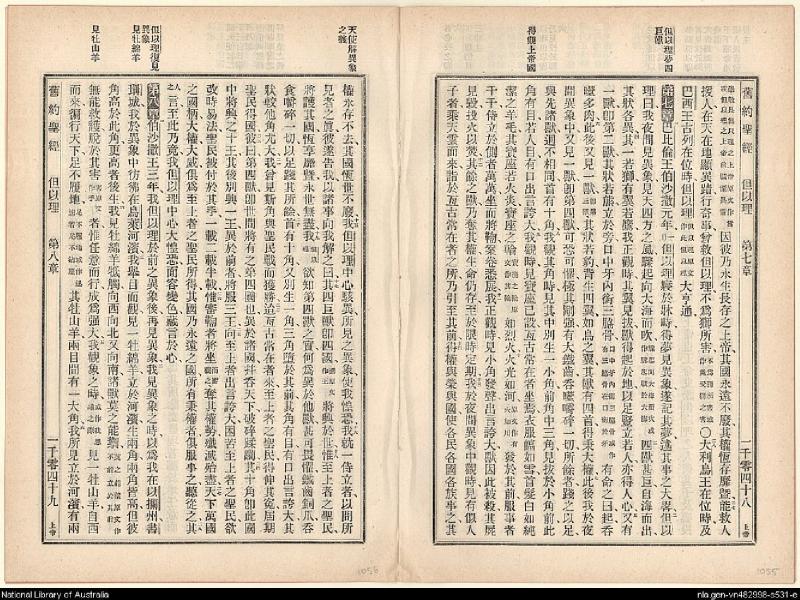 但以理夢四巨獸
得觀上帝國
舊約聖經 但以理 第七章 一千零四十八 上帝
因彼乃永生長存之上帝其國永遠不廢其權恆存靡曁能救人
援人在天在地顯異蹟行奇事曾救但以理不爲獅所害 〇大利烏王在位時及
巴西王古列在位時但以理 大亨通
第七章巴比倫王伯沙撒元年但以理寢於牀時得夢見異象遂記其夢述其事之大畧但以
理曰我夜間見異象見天四方之風驟起向大海而吹 四獸甚巨自海而出
其狀各異其一若獅有翼若鷹我正觀時其翼見拔獸得起於地以足豎立若人亦得人心又有
一獸卽第二獸其狀若熊立於旁口中牙內銜三脇骨 有命之曰起吞
噬多肉此後又見一獸 其狀若豹背生四翼如鳥之翼其獸有四首得秉大權此後我於夜
間異象中又見一獸卽第四獸可恐可懼極其剛强有大鐵齒吞噬嚼碎一切所餘者踐之以足
與先諸獸迥不相同首有十角我觀其角時見其中別生一小角前角中三角見拔於小角前此
角有目若人目有口出言誇大我觀時見寶座已設亙古常在者坐焉衣服皤如雪首髮白如純
潔之羊毛其寶座若火炎寶座之輪 如烈火火光如河 發於其前服事者
千千侍立於側者萬萬坐而將鞫案卷悉展我正觀時見小角發聲出言誇大獸因此被殺其屍
見毀投火以焚其餘之獸乃奪其權生命仍存至於限時定期我於夜間異象中觀時見有似人
子者乘天雲而來詣於亙古常在者之所乃引至其前得權與榮與國使各民各國各族事之其
天使解異象之義
但以理復見異象
見牡綿羊
見牡山羊
權永存不去其國恆世不廢我但以理中心駭異所見之異象使我惶恐我就一侍立者以問所
見者之眞彼遂告我以諸事向我解之曰其四巨獸卽四國 將興於世惟至上者之聖民
將護其國恆享靡曁永世無盡 欲知第四獸之實何爲異於他獸甚可畏懼鐵齒銅爪吞
食嚼碎一切以足踐其所餘首有十角又別生一角三角墮於其前其角有目有口出言誇大其
狀較他角尤大我曾見斯角與聖民戰而獲勝迨亙古常在者來至上者之聖民得伸其寃屆期
聖民得國彼曰第四獸卽世間將有之第四國也異於諸國幷吞天下破碎蹂躪其十角卽此國
中將興之十王其後別興一王異於前者將服三王向至上者出言誇大困苦至上者之聖民欲
改時易法聖民被付於其手一載二載半載惟審鞫者將坐 奪其權勢殲滅殆盡天下萬國
之國柄大權大威俱爲至上者之聖民所得其國乃永遠之國所有秉權者俱服事之聽從之其
人言至此乃竟我但以理中心大惶恐而容變色蔵言於心
第八章伯沙撒王三年我但以理於前之異象後再見異象我見異象之時以爲我在以攔州書
珊城我於異象中彷彿在烏萊河濱我舉目而觀見一牡綿羊立於河濱生兩角兩角皆高但彼
角高於此角更高者後生我見牡綿羊牴觸向西向北又向南諸獸莫之能禦
無能救護脫於其害 者惟任意而行成爲强大我觀象之時 見一牡山羊自西
而來徧行天下足不履地 其牡山羊兩目間有一大角我所見立於河濱有兩
舊約聖經 但以理 第八章 一千零四十九 上帝
1056
1055
National Library of Australia
nla.gen-vn482998-s531-e